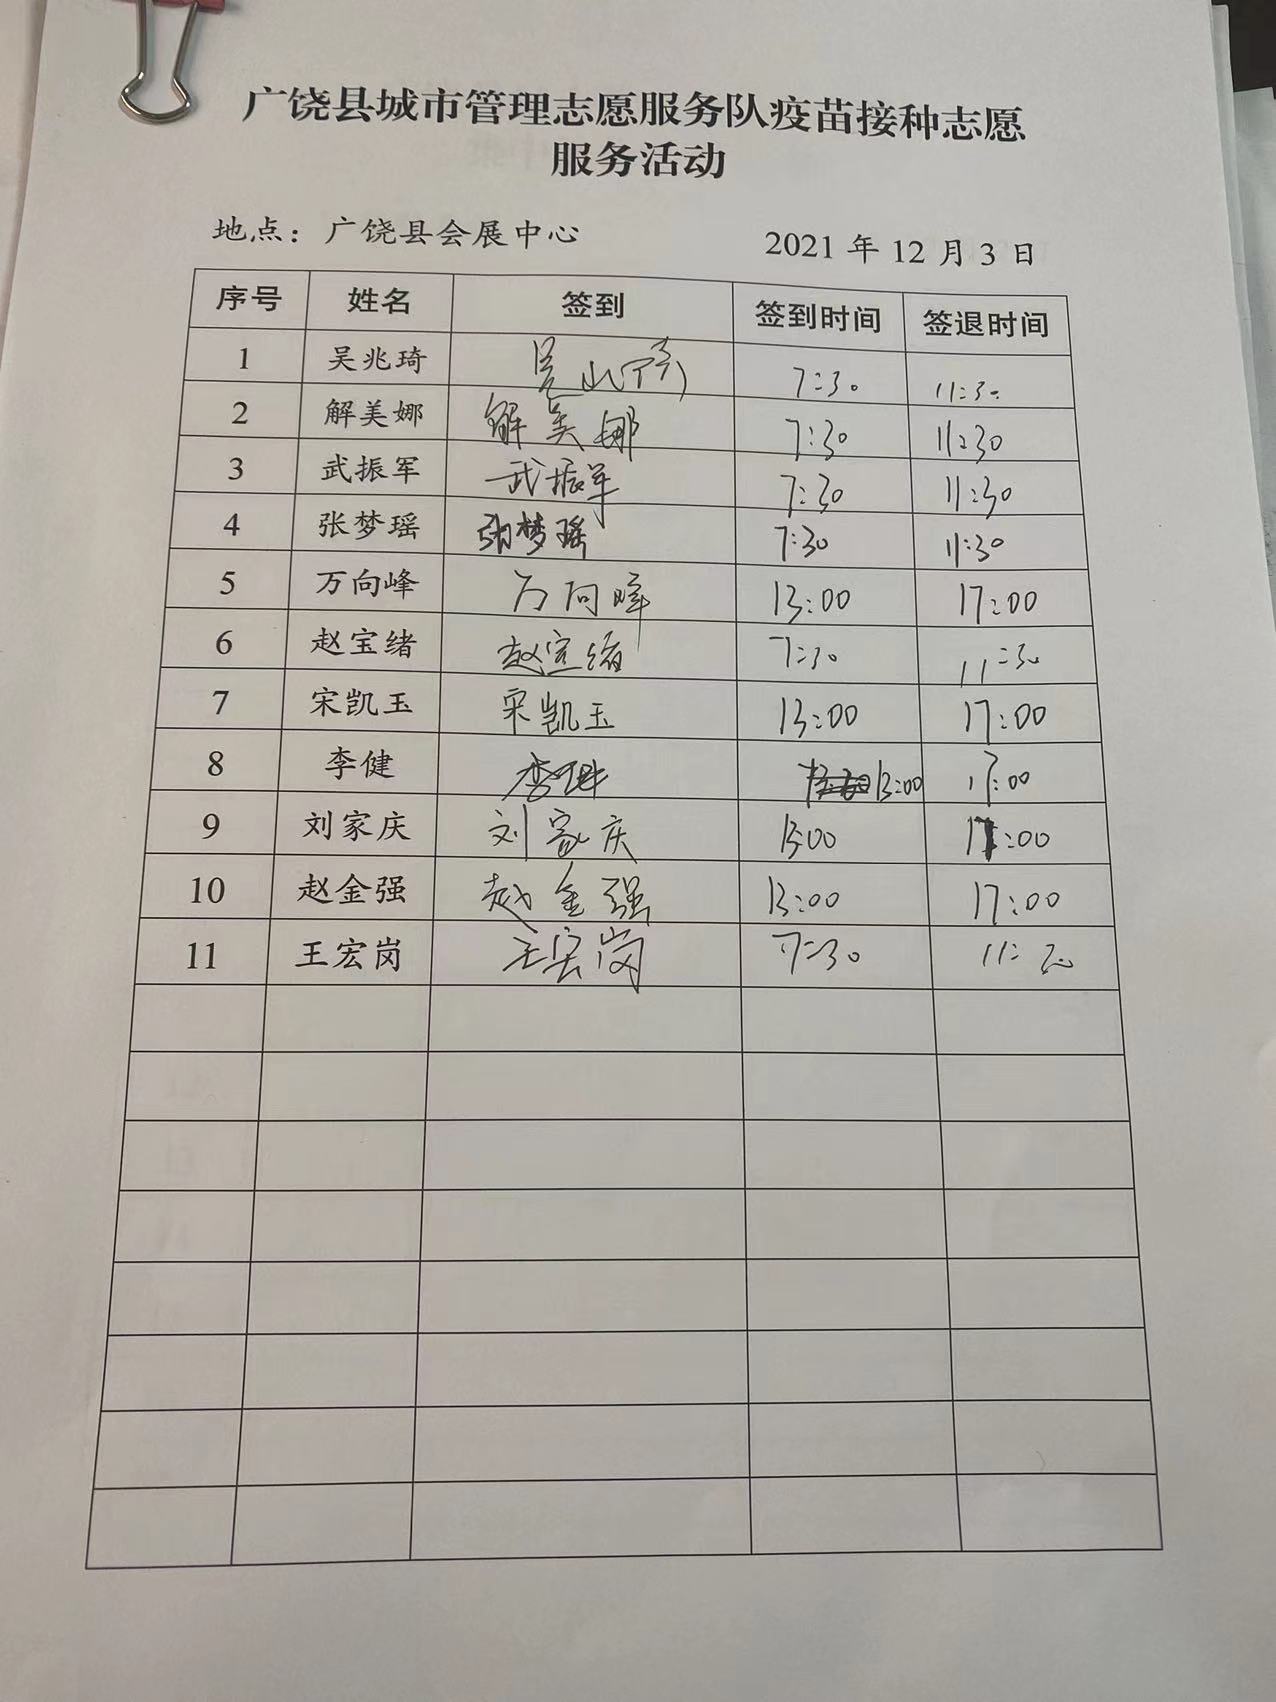 广饶县城市管理志愿服务队疫苗接种志愿
服务活动
地点：广饶县会展中心 2021 年 12 月 3 日
序号 姓名 签到 签到时间 签退时间
1 吴兆琦 7:30 11:30
2 解美娜 解美娜 7:30 11:30
3 武振军 武振军 7:30 11:30
4 张梦瑶 张梦瑶 7:30 11:30
5 万向峰 万向峰 13:00 17:00
6 赵宝绪 赵宝绪 7:30 11:30
7 宋凯玉 宋凯玉 13:00 17:00
8 李健 李健 13:00 17:00
9 刘家庆 刘家庆 13:00 17:00
10 赵金强 赵金强 13:00 17:00
11 王宏岗 王宏岗 7:30 11:30